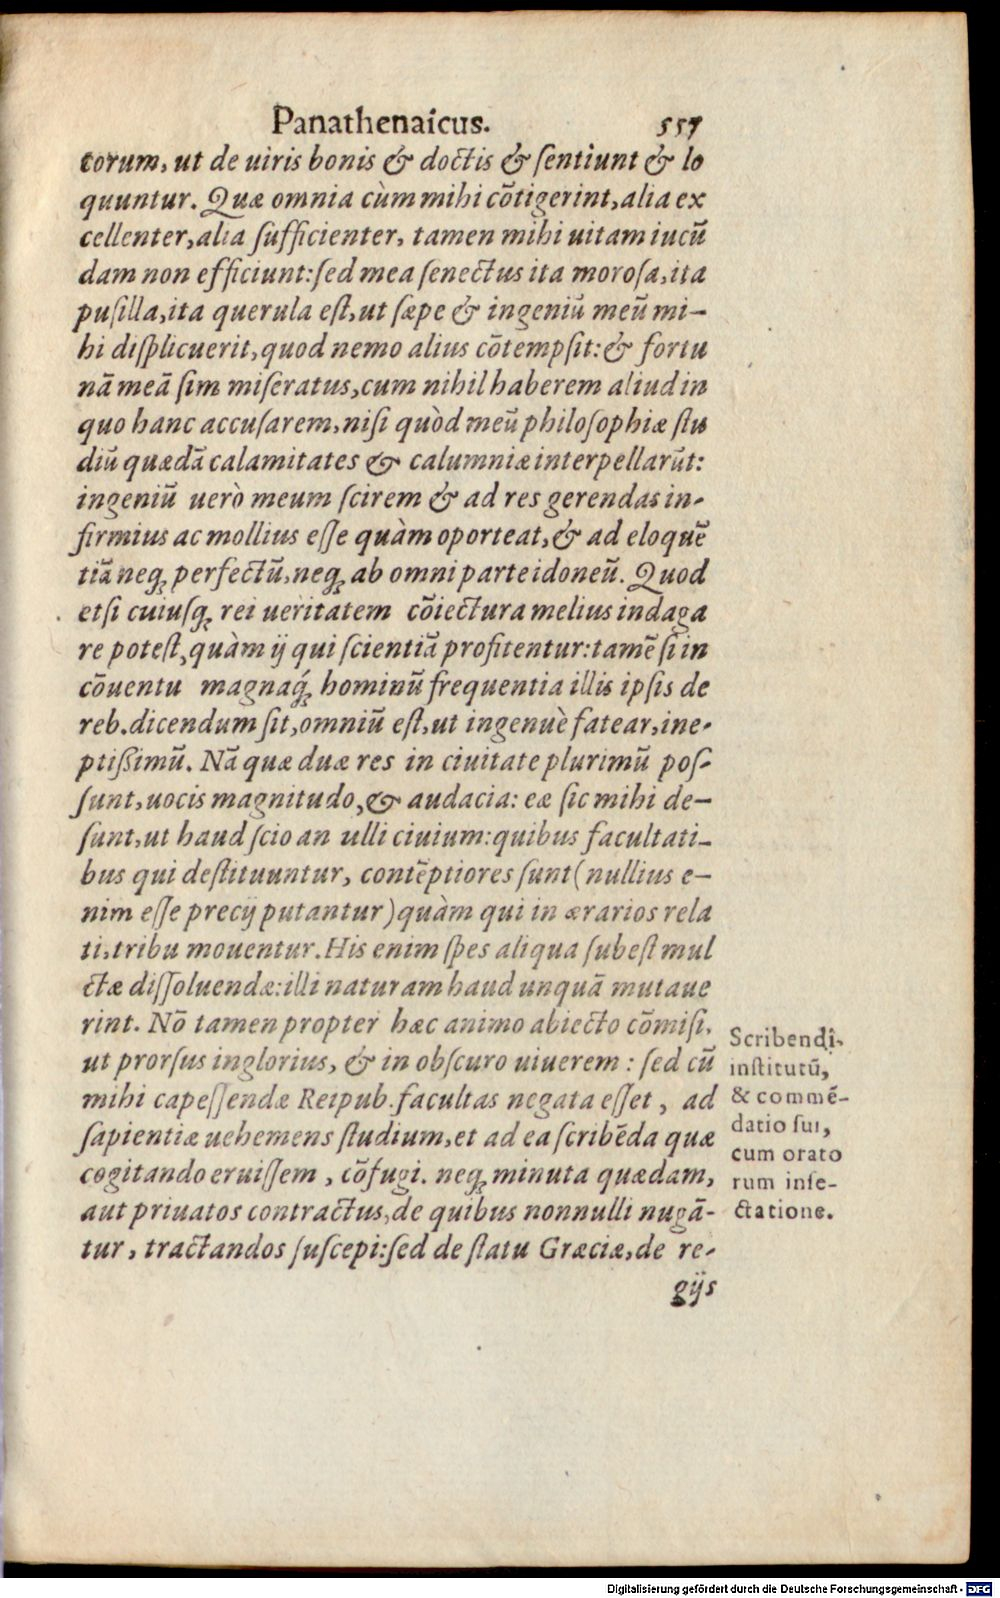 Panathenaicus. 557
torum, ut de uiris bonis & doctis & sentiunt & lo
quuntur. Quæ omnia cùm mihi cõtigerint, alia ex
cellenter, alia sufficienter, tamen mihi uitam iucũ
dam non efficiunt: sed mea senectus ita morosa, ita
pusilla, ita querula est, ut sæpe & ingeniũ meũ mi-
hi displicuerit, quod nemo alius cõtempsit: & fortu
nã meã sim miseratus, cum nihil haberem aliud in
quo hanc accusarem, nisi quòd meũ philosophiæ stu
diũ quædã calamitates & calumniæ interpellarũt:
ingeniũ uerò meum scirem & ad res gerendas in-
firmius ac mollius esse quàm oporteat, & ad eloquẽ
tiã neq; perfectũ, neq; ab omni parte idoneũ. Quod
etsi cuiusq; rei ueritatem cõiectura melius indaga
re potest, quàm ij qui scientiã profitentur: tamẽ si in
cõuentu magnaq́; hominũ frequentia illis ipsis de
reb. dicendum sit, omniũ est, ut ingenuè fatear, ine-
ptißimũ. Nã quæ duæ res in ciuitate plurimũ pos-
sunt, uocis magnitudo, & audacia: eæ sic mihi de-
sunt, ut haud scio an ulli ciuium: quibus facultati-
bus qui destituuntur, contẽptiores sunt (nullius e-
nim esse precij putantur) quàm qui in ærarios rela
ti, tribu mouentur. His enim spes aliqua subest mul
ctæ dissoluendæ: illi naturam haud unquã mutaue
rint. Nõ tamen propter hæc animo abiecto cõmisi,
ut prorsus inglorius, & in obscuro uiuerem: sed cũ
mihi capessendæ Reipub. facultas negata esset, ad
sapientiæ uehemens studium, et ad ea scribẽda quæ
cogitando eruissem, cõfugi. neq; minuta quædam,
aut priuatos contractus, de quibus nonnulli nugã-
tur, tractandos suscepi: sed de statu Græciæ, de re-
gijs
Scribendi
institutũ,
& commẽ-
datio sui,
cum orato
rum inse-
ctatione.
Digitalisierung gefördert durch die Deutsche Forschungsgemeinschaft - DFG